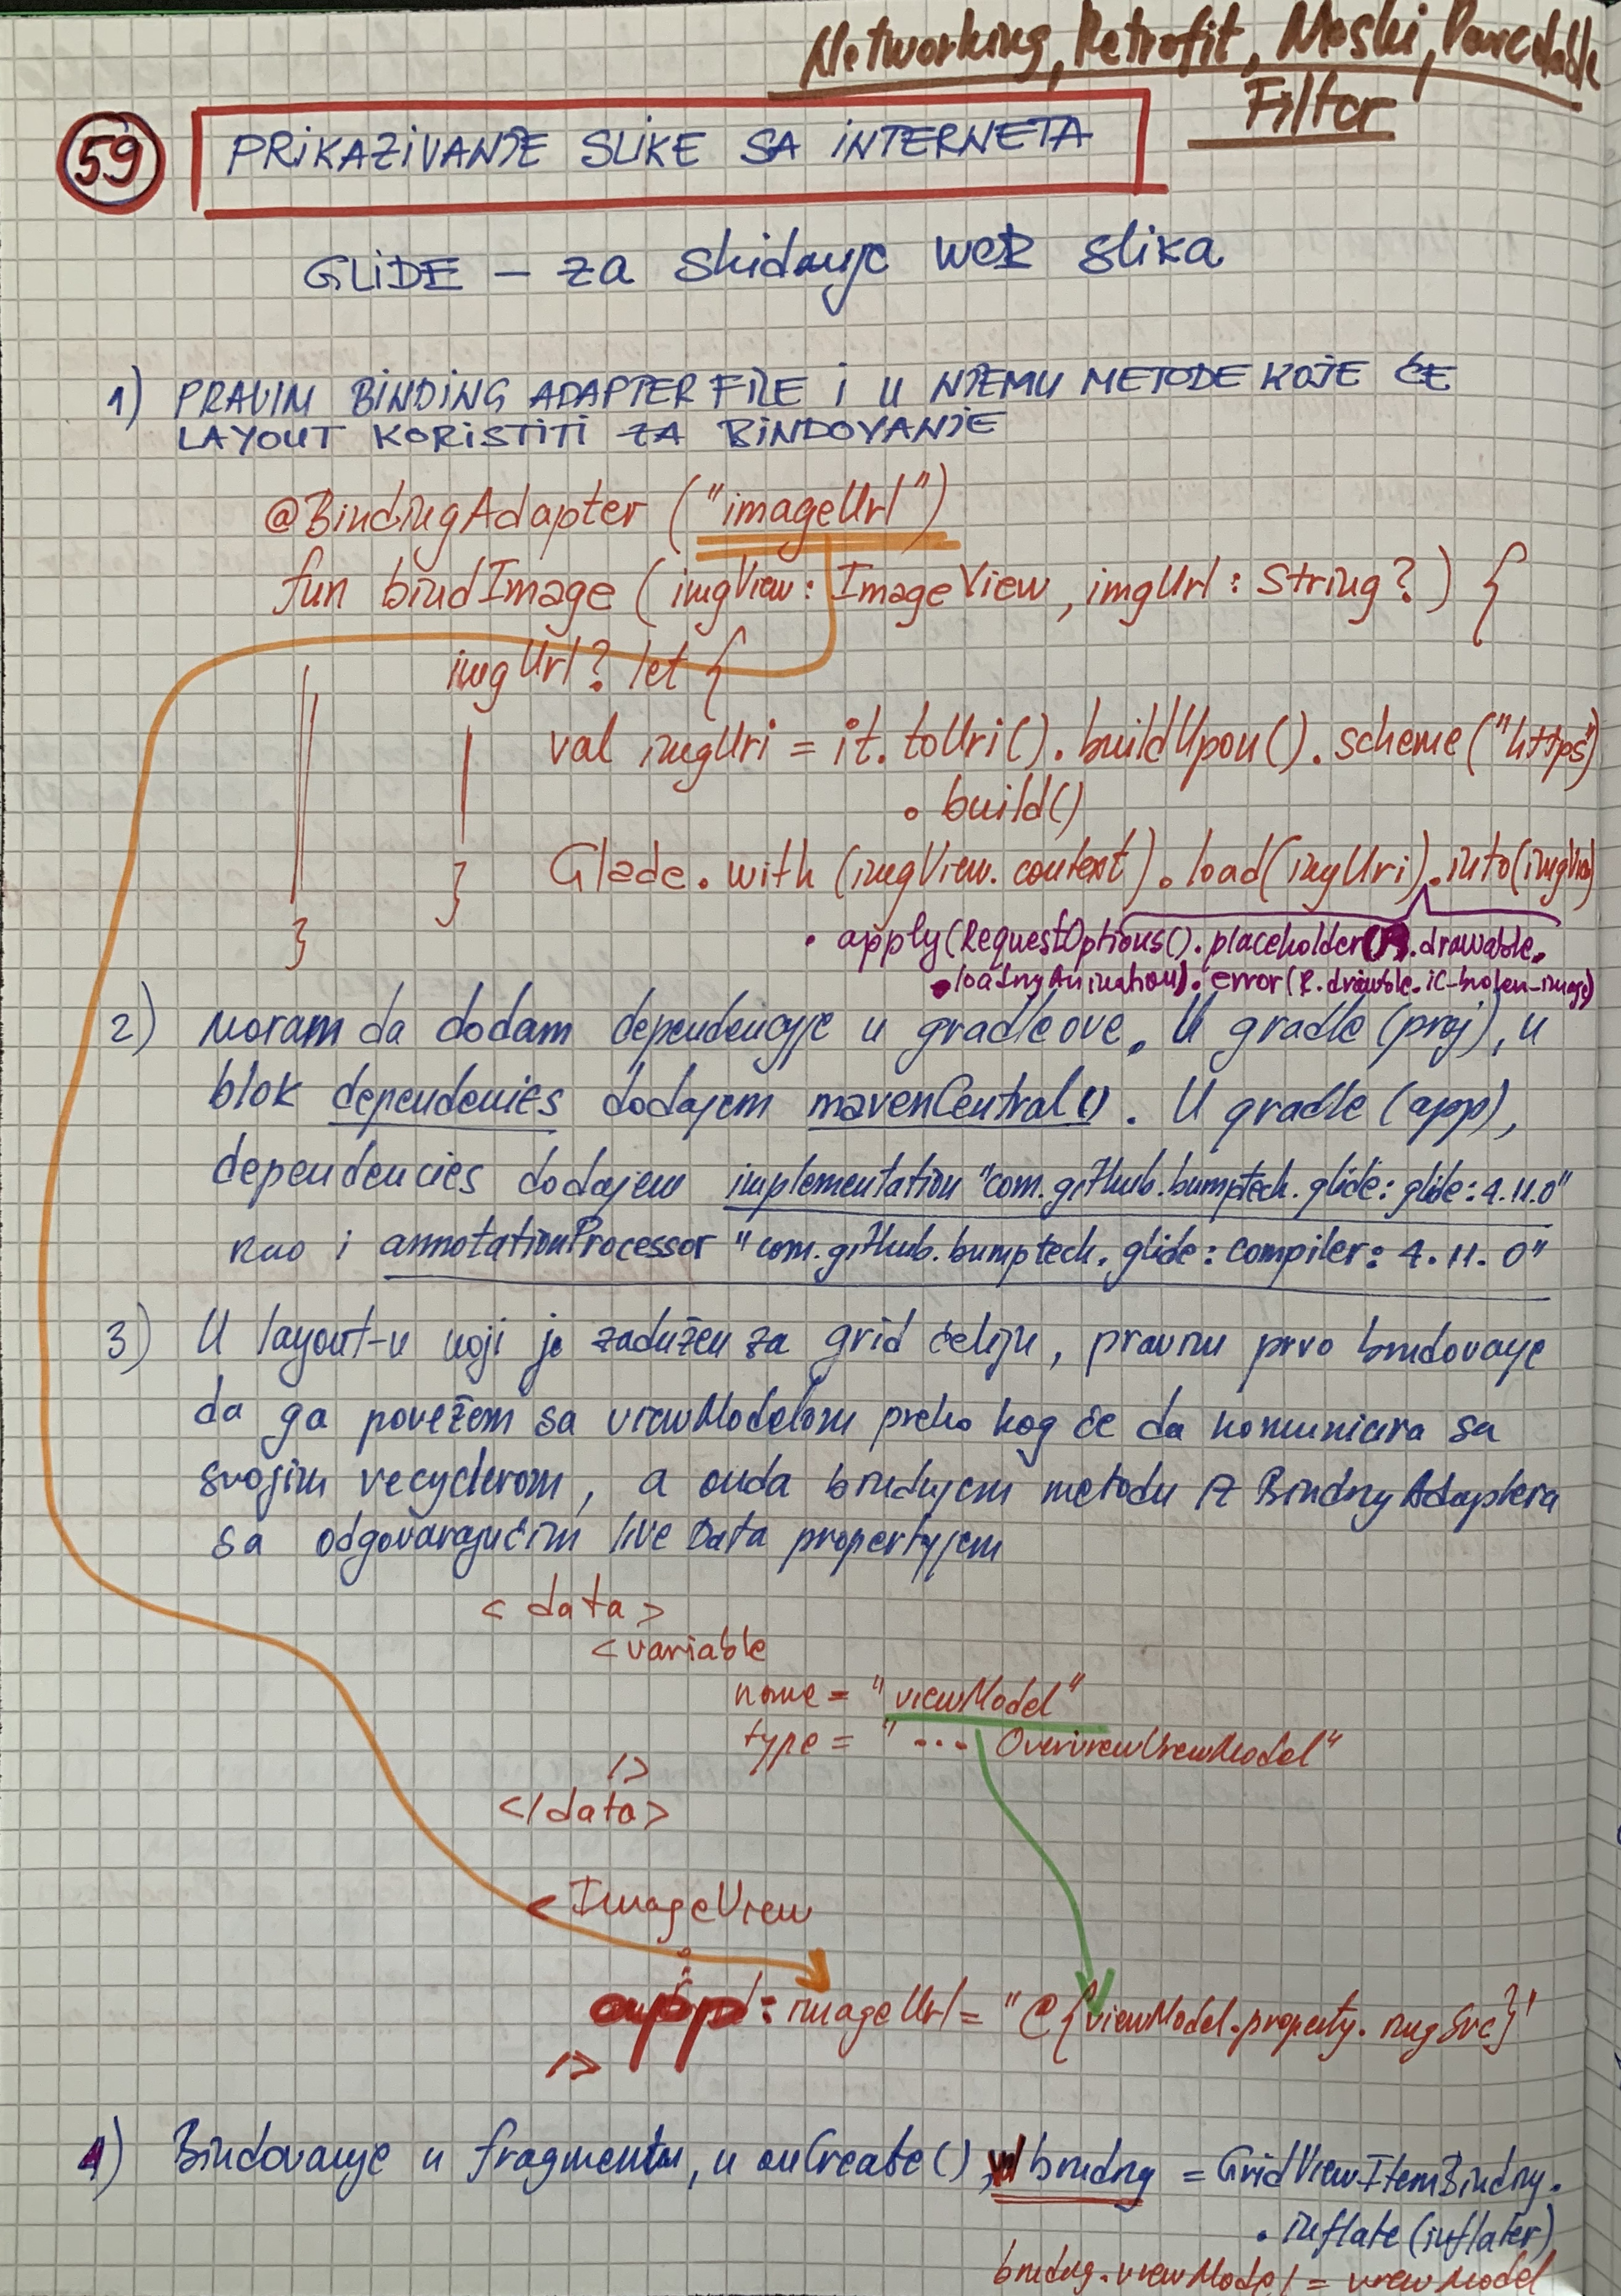 Networking, Retrofit, Moshi, Parcelable
Filter
59 PRIKAZIVANJE SLIKE SA INTERNETA
GLIDE – za skidanje WEB slika
1) PRAVIM BINDING ADAPTER FILE I U NJEMU METODE KOJE ĆE
LAYOUT KORISTITI ZA BINDOVANJE
@BindingAdapter ("imageUrl")
fun bindImage (imgView: ImageView, imgUrl: String?) {
imgUrl? let {
val imgUri = it.toUri().buildUpon().scheme("https")
.build()
Glade.with (imgView.context).load(imgUri).into(imgView)
}
}
. apply(RequestOptions().placeholder(R.drawable.
.loadingAnimation). error(R.drawable.ic-broken-image)
2) Moram da dodam dependencyje u gradleove. U gradle (proj), u
blok dependenies dodajem mavenCentral(). U gradle (app),
dependencies dodajem implementation "com.github.bumptech.glide:glide:4.11.0"
kao i annotationProcessor "com.github.bumptech.glide:compiler:4.11.0"
3) U layout-u koji je zadužen za grid ćeliju, pravim prvo bindovanje
da ga povežem sa viewModelom preko kog će da komunicira sa
svojim recyclerom, a onda bindujem metodu iz BindingAdaptera
sa odgovarajućim live Data propertyjem
< data >
< variable
name = "viewModel"
type = "... OverviewViewModel"
/>
</data>
< ImageView
:
app: imageUrl = "@{viewModel.property.imgSrc}"
/>
4) Bindovanje u fragmentu, u onCreate(), val binding = GridViewItemBinding.
. inflate (inflater)
binding.viewModel = viewModel